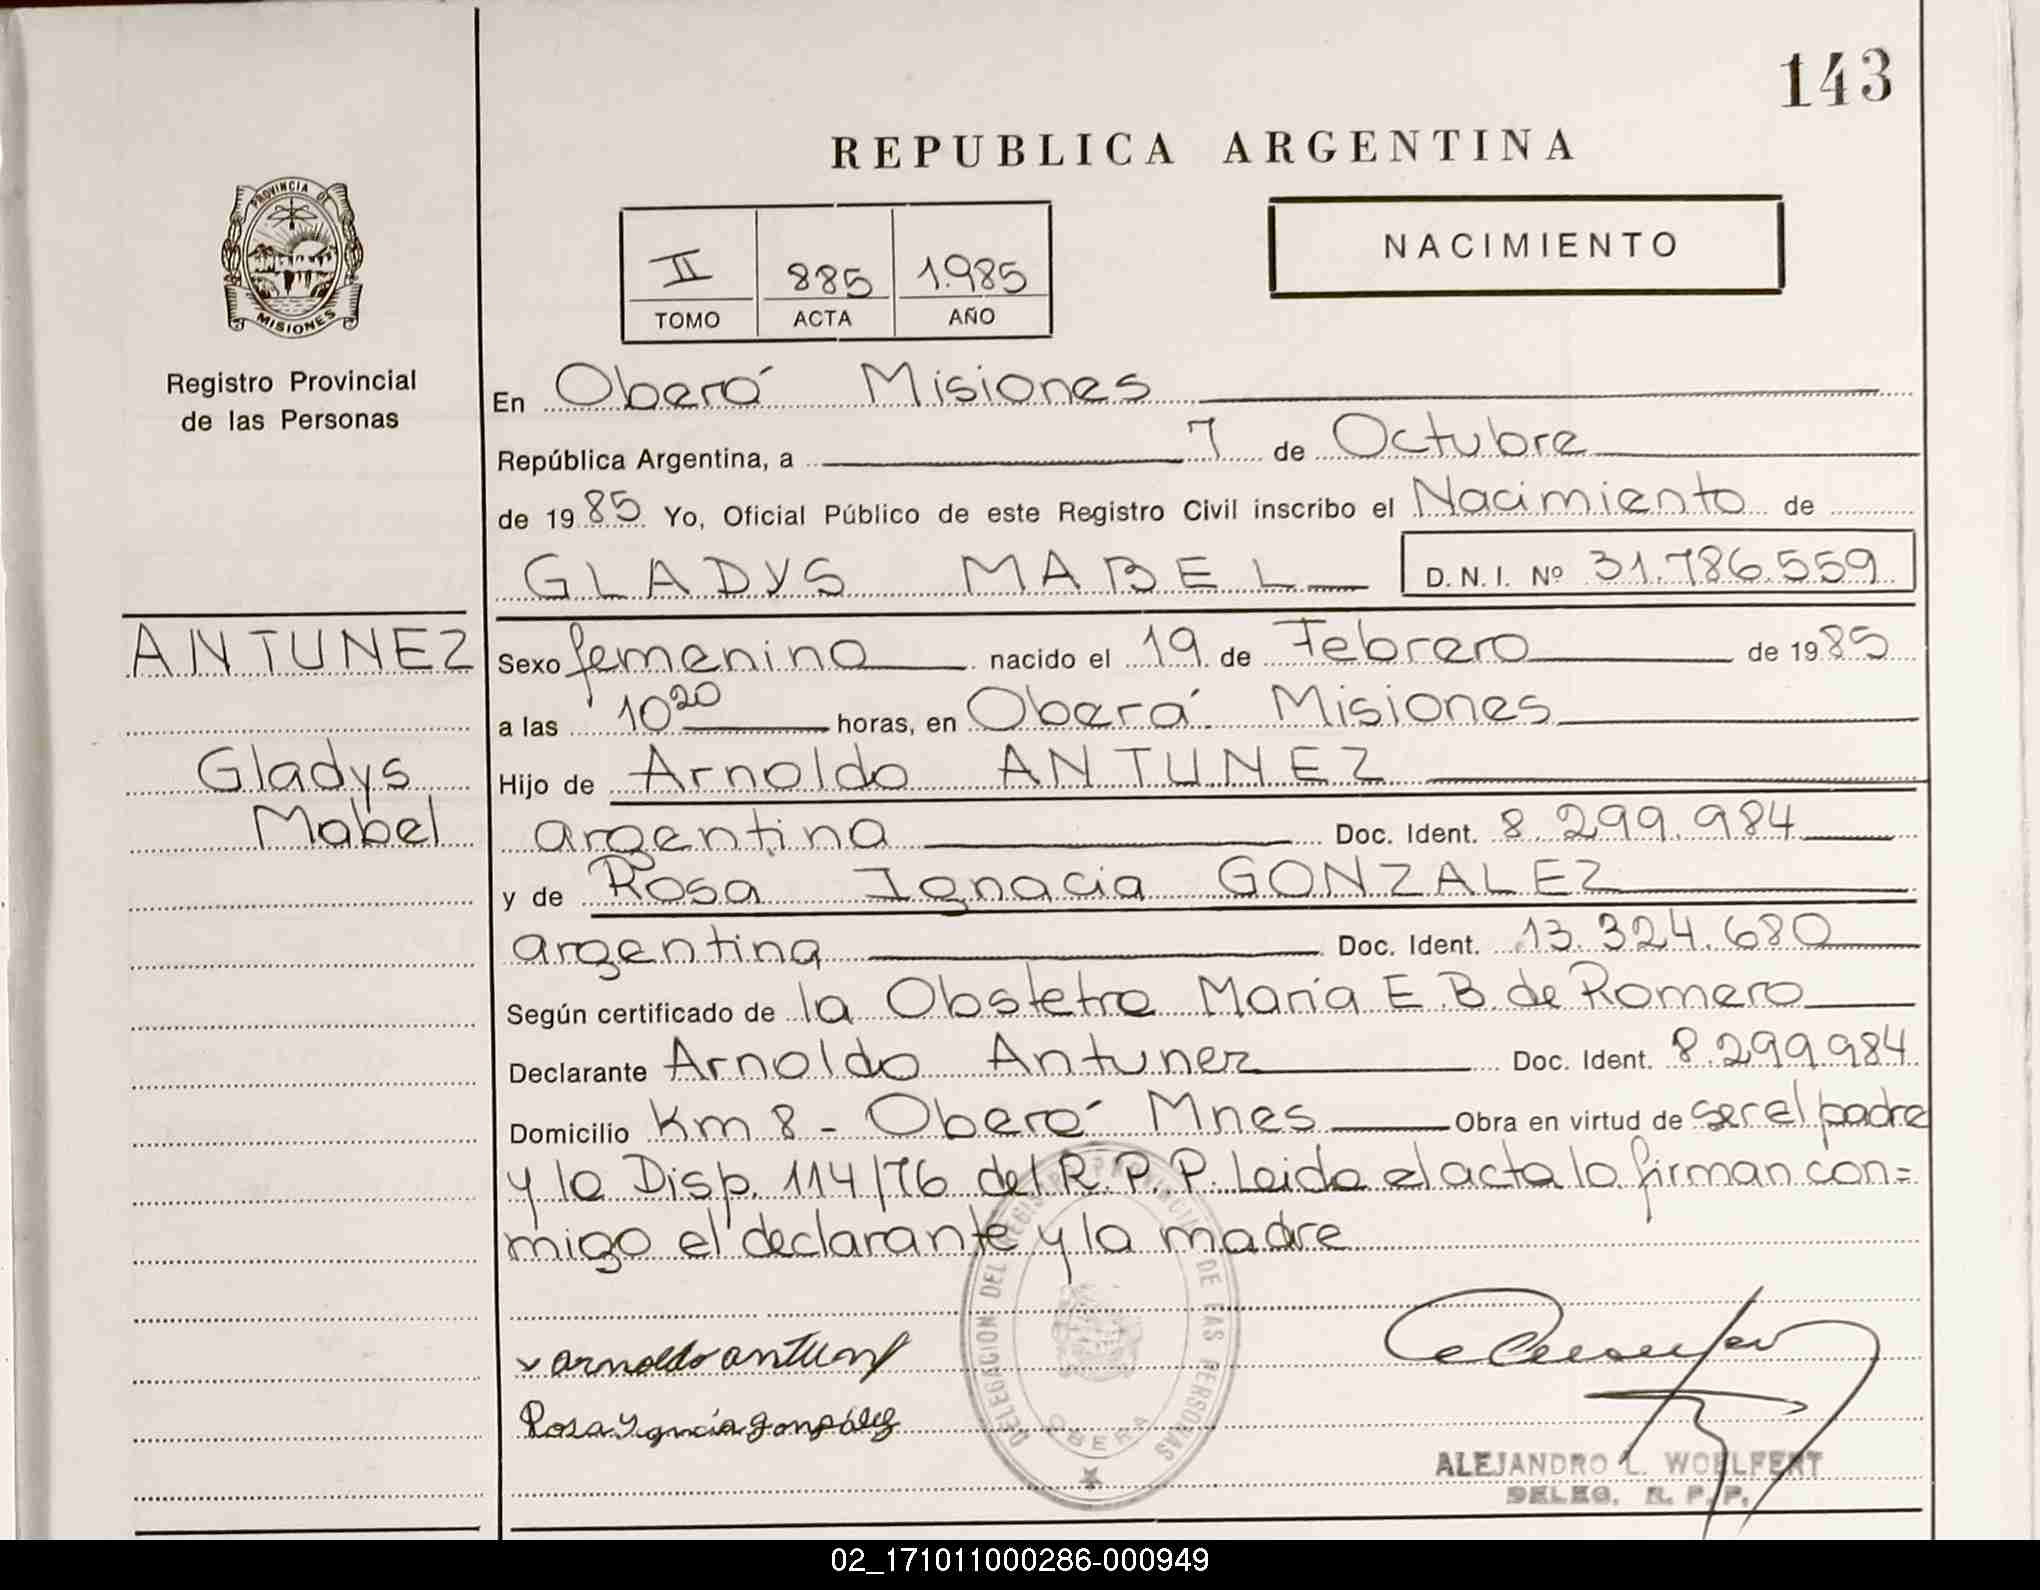 143
REPUBLICA ARGENTINA
PROVINCIA DE
MISIONES
Registro Provincial
de las Personas
II 885 1.985
TOMO ACTA AÑO
NACIMIENTO
En Oberá Misiones
República Argentina, a 7 de Octubre
de 1985 Yo, Oficial Público de este Registro Civil inscribo el Nacimiento de
GLADYS MABEL D.N.I. Nº 31.786.559
ANTUNEZ
Gladys
Mabel
Sexo femenino nacido el 19 de Febrero de 1985
a las 10 20 horas, en Oberá Misiones
Hijo de Arnoldo ANTUNEZ
argentina Doc. Ident. 8.299.984
y de Rosa Ignacia GONZALEZ
argentina Doc. Ident. 13.324.680
Según certificado de la Obstetra María E.B. de Romero
Declarante Arnoldo Antunez Doc. Ident. 8.299.984
Domicilio Km 8 - Oberá Mnes Obra en virtud de ser el padre
y la Disp. 114/76 del R.P.P. Leida el acta lo firman con=
migo el declarante y la madre
x arnoldo antunez
Rosa Ygnacia González
DELEGACION DEL REGISTRO PROVINCIAL DE LAS PERSONAS
OBERA
ALEJANDRO L. WOELFERT
DELEG. R. P. P.
02_171011000286-000949